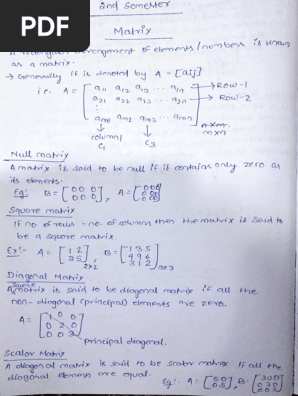 PDF
2nd Semester
Matrix
A rectangular arrangement of elements/numbers is known
as a matrix.
→ Generally it is denoted by A = [aij]
i.e. A = [a11 a12 a13 ... a1n → Row-1
a21 a22 a23 ... a2n → Row-2
am1 am2 am3 ... amn]
m×n
column
C1 C3
Null matrix
A matrix is said to be null if it contains only zero as
its elements.
Eg: B = [0 0 0
0 0 0],
Square matrix
If no. of rows = no. of columns then the matrix is said to
be a square matrix.
Ex:- A = [1 2
3 5]2×2, B = [1 3 5
4 9 6
3 1 2]3×3
Diagonal Matrix
Square
A matrix is said to be diagonal matrix if all the
non-diagonal (principal) elements are zero.
A = [1 0 0
0 2 0
0 0 3]
principal diagonal.
Scalar Matrix
A diagonal matrix is said to be scalar matrix if all the
diagonal elements are equal.
Eg: